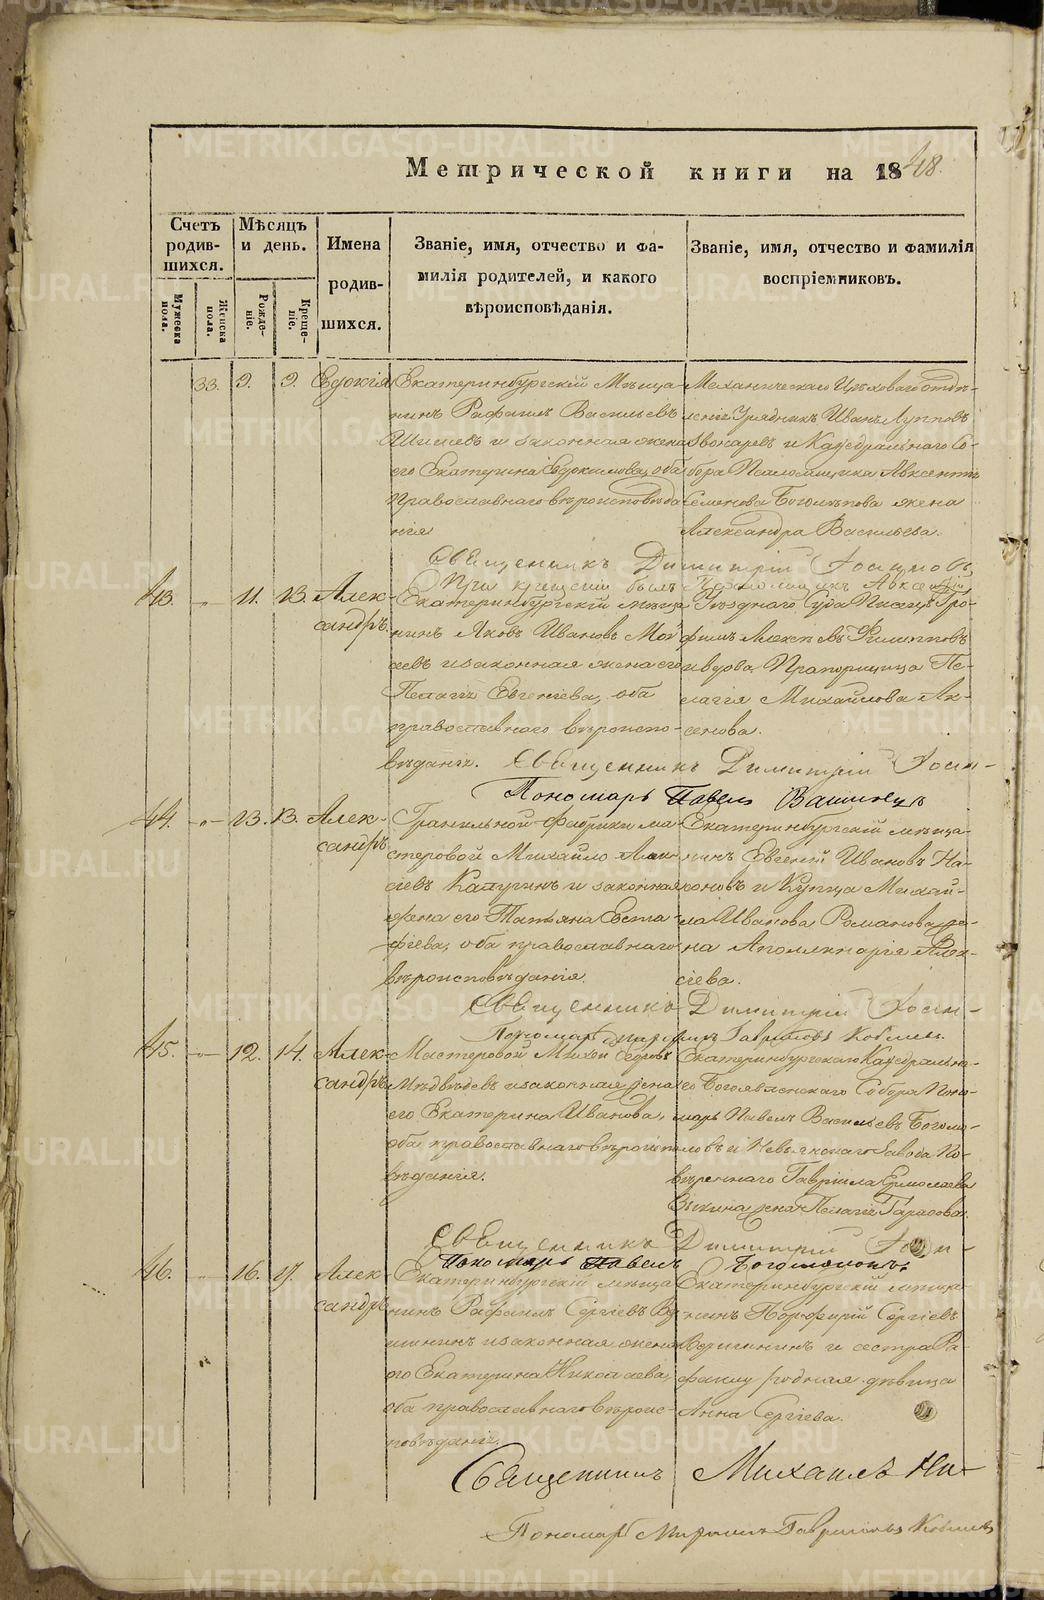 Метрической книги на 1848.
Счетъ родив-шихся.
Мѣсяцъ и день.
Имена родив-шихся.
Званіе, имя, отчество и фа-
милія родителей, и какого
вѣроисповѣданія.
Званіе, имя, отчество и фамилія
воспріемниковъ.
Мужеска пола.
Женска пола.
Рожде-ніе.
Креще-ніе.
33. 9. 9. Евдокія
Екатеринбургскій Мѣща-
нинъ Рафаилъ Васильевъ
и законная жена
его Екатерина Евдокимова, оба
Православнаго вѣроисповѣда
нія
Механическаго Цѣховаго отдѣ-
ленія Урядникъ Иванъ Лупповъ
Звонаревъ и Каѳедральнаго Со-
бора Псаломщика Авксентія
Семенова Боголѣпова жена
Александра Васильева.
Священникъ Димитрій
При крещеніи былъ Псаломщикъ Авксентій
43. 11. 13. Алек-
сандръ
Екатеринбургскій мѣща
нинъ Яковъ Ивановъ
и законная жена его
Пелагія Евгеніева, оба
православнаго вѣроиспо-
вѣданія.
Уѣзднаго Суда Писецъ Тро-
фимъ Алексѣевъ Филипповъ
и вдова Прапорщица Пе-
лагія Михайлова Ак-
сенова.
Священникъ Димитрій
Пономарь Павелъ
44. 13. 13. Алек-
сандръ
Гранильной фабрики ма-
стеровой Михайло Алек-
сіевъ Калугинъ и законная
жена его Татьяна Еста-
фіева, оба православнаго
вѣроисповѣданія.
Екатеринбургскій мѣща-
нинъ Евгеній Ивановъ
и Купца Михай-
ла Иванова Романова же-
на Аполинарія Алек-
сіева.
Священникъ Димитрій
Пономарь Гавриловъ
45. 12. 14. Алек-
сандръ
Мастеровой Михей Ѳедоровъ
Медвѣдевъ и законная жена
его Екатерина Иванова,
оба православнаго вѣроиспо
вѣданія.
Екатеринбургскаго Каѳедрально-
го Богоявленскаго Собора Поно-
марь Павелъ Васильевъ Богомо-
ловъ и Невьянскаго Завода По-
вѣреннаго Гавріила Ермолаева
жена Пелагія Тарасова.
Священникъ Димитрій
Пономарь Павелъ Богомоловъ
46. 16. 17. Алек
сандръ
Екатеринбургскій мѣща
нинъ Рафаилъ Сергіевъ Ве
ригинъ и законная жена
его Екатерина Николаева,
оба православнаго вѣроис-
повѣданія.
Екатеринбургскій мѣща-
нинъ Порфирій Сергіевъ
Веригинъ и сестра Ра-
фаилу родная дѣвица
Анна Сергіева.
Священникъ Михаилъ
Пономарь Гавриловъ
METRIKI.GASO-URAL.RU